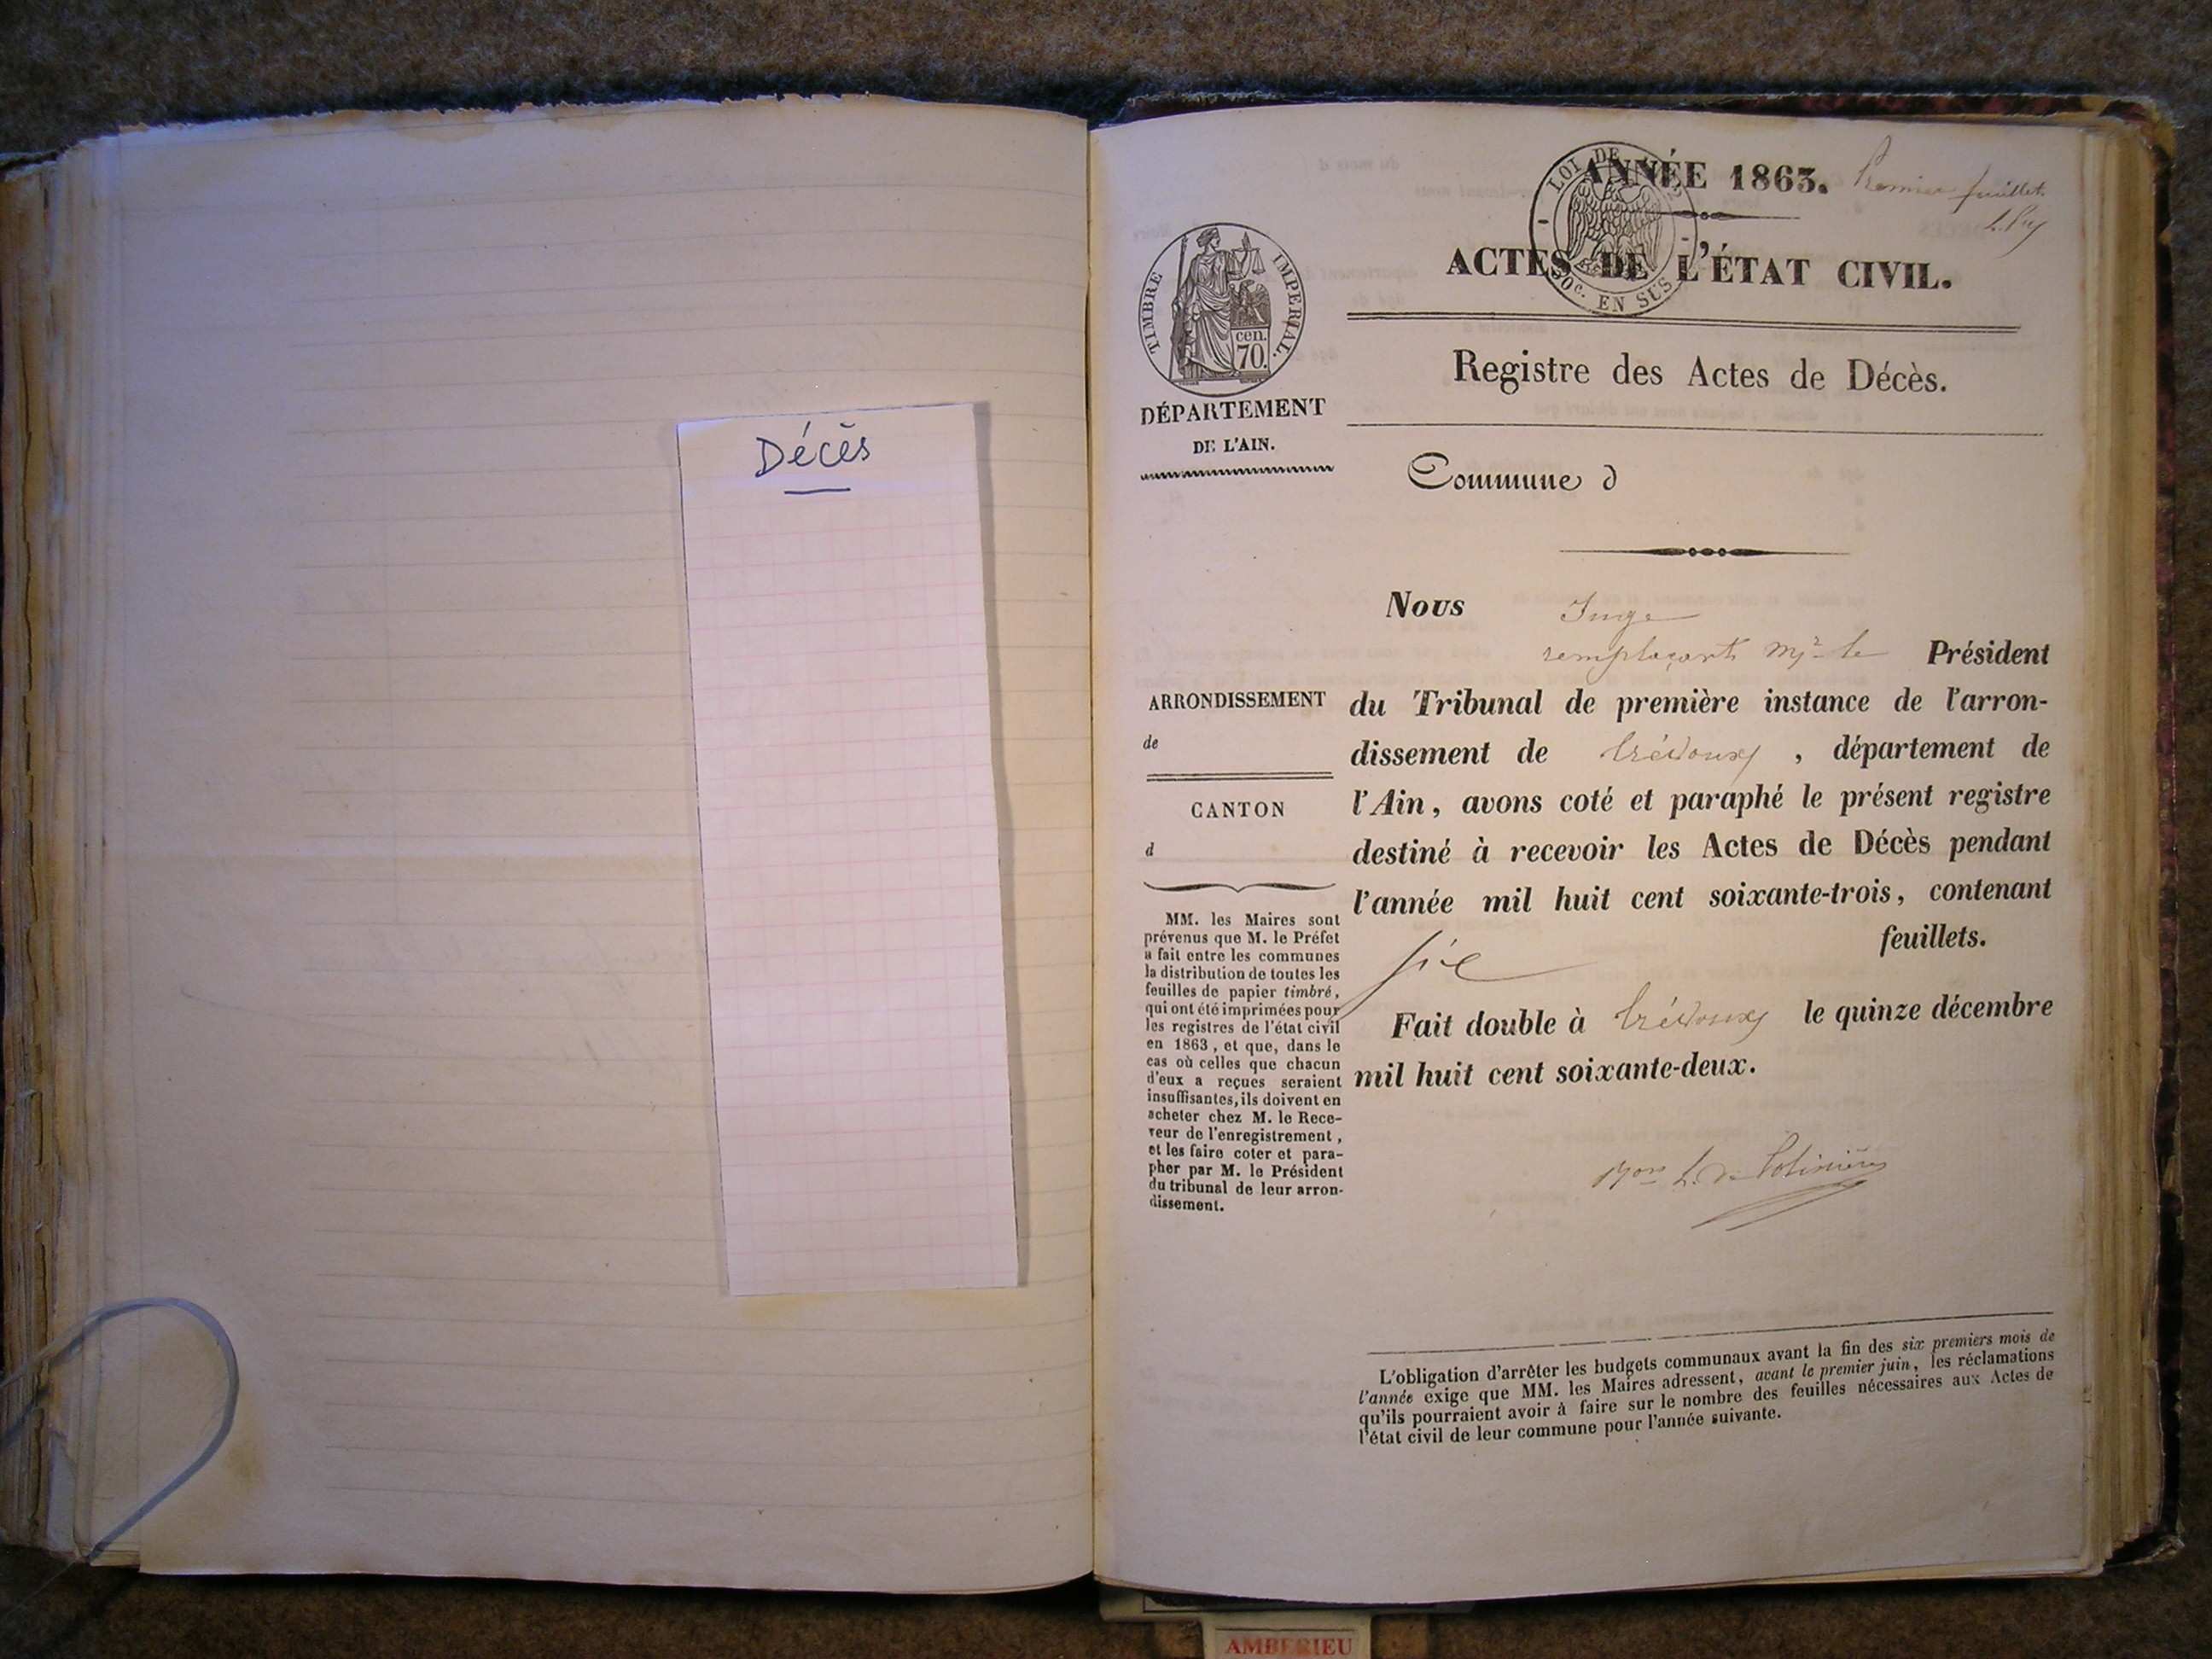 Décès
ANNÉE 1863.
Premier feuillet.
LOI DE
ACTES DE L'ÉTAT CIVIL.
EN SUS
TIMBRE IMPERIAL.
cen.
70.
Registre des Actes de Décès.
DÉPARTEMENT
DE L'AIN.
Commune d
Nous Juge
remplaçant Mr le Président
ARRONDISSEMENT
de
CANTON
d
du Tribunal de première instance de l'arron-
dissement de Trévoux , département de
l'Ain, avons coté et paraphé le présent registre
destiné à recevoir les Actes de Décès pendant
l'année mil huit cent soixante-trois, contenant
six feuillets.
Fait double à Trévoux le quinze décembre
mil huit cent soixante-deux.
MM. les Maires sont
prévenus que M. le Préfet
a fait entre les communes
la distribution de toutes les
feuilles de papier timbré,
qui ont été imprimées pour
les registres de l'état civil
en 1863, et que, dans le
cas où celles que chacun
d'eux a reçues seraient
insuffisantes, ils doivent en
acheter chez M. le Rece-
veur de l'enregistrement,
et les faire coter et para-
pher par M. le Président
du tribunal de leur arron-
dissement.
L'obligation d'arrêter les budgets communaux avant la fin des six premiers mois de
l'année exige que MM. les Maires adressent, avant le premier juin, les réclamations
qu'ils pourraient avoir à faire sur le nombre des feuilles nécessaires aux Actes de
l'état civil de leur commune pour l'année suivante.
AMBERIEU